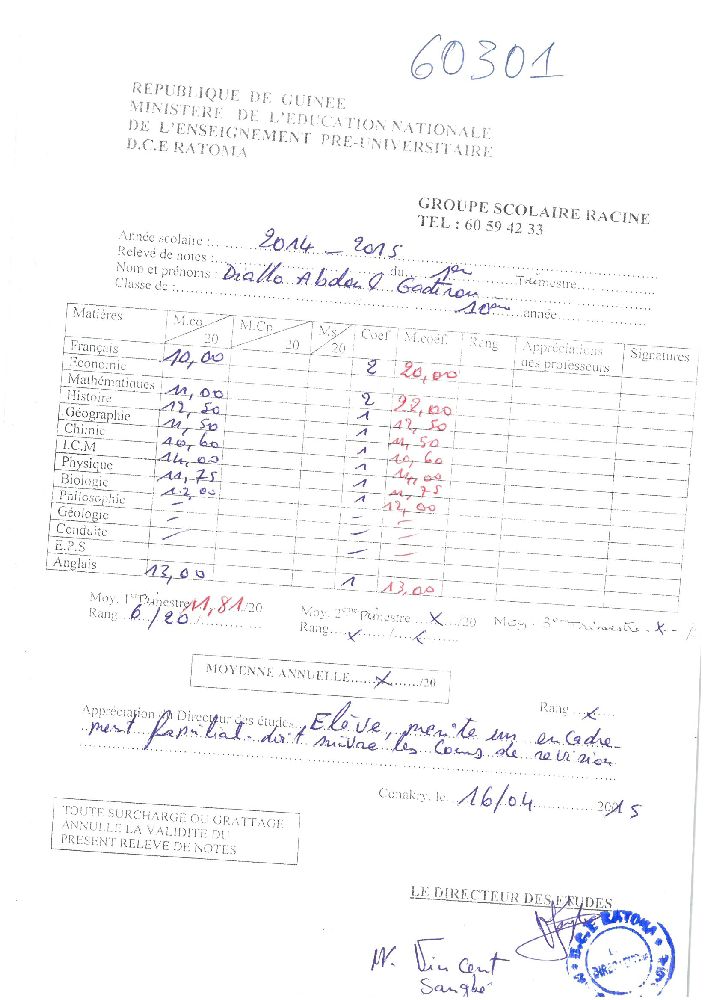 60301
REPUBLIQUE DE GUINEE
MINISTERE DE L'EDUCATION NATIONALE
DE L'ENSEIGNEMENT PRE-UNIVERSITAIRE
D.C.E RATOMA
GROUPE SCOLAIRE RACINE
TEL : 60 59 42 33
Année scolaire : 2014 - 2015
Relevé de notes : du 1er Trimestre
Nom et prénoms : Diallo Abdoul Gadirou
Classe de : 10ème année
Matières M.co 20 M.Cp 20 Ms 20 Coef M.coéf. Rang Appréciations des professeurs Signatures
Français 10,00 2 20,00
Economie
Mathématiques 11,00 2 22,00
Histoire 12,50 1 12,50
Géographie 11,50 1 11,50
Chimie 10,60 1 10,60
I.C.M 14,00 1 14,00
Physique 11,75 1 11,75
Biologie 12,00 1 12,00
Philosophie
Géologie
Conduite
E.P.S
Anglais 13,00 1 13,00
Moy. 1er Trimestre 11,81/20 Moy. 2ème Trimestre x /20 Moy 3e Trimestre x /
Rang 6/20 Rang x / x
MOYENNE ANNUELLE x /20
Rang x
Appréciation du Directeur des études Elève, mérite un encadre-
ment familial doit suivre les cours de révision
Conakry, le 16/04 2015
TOUTE SURCHARGE OU GRATTAGE
ANNULLE LA VALIDITE DU
PRESENT RELEVE DE NOTES
LE DIRECTEUR DES ETUDES
D.C.E RATOMA
Mr Vincent